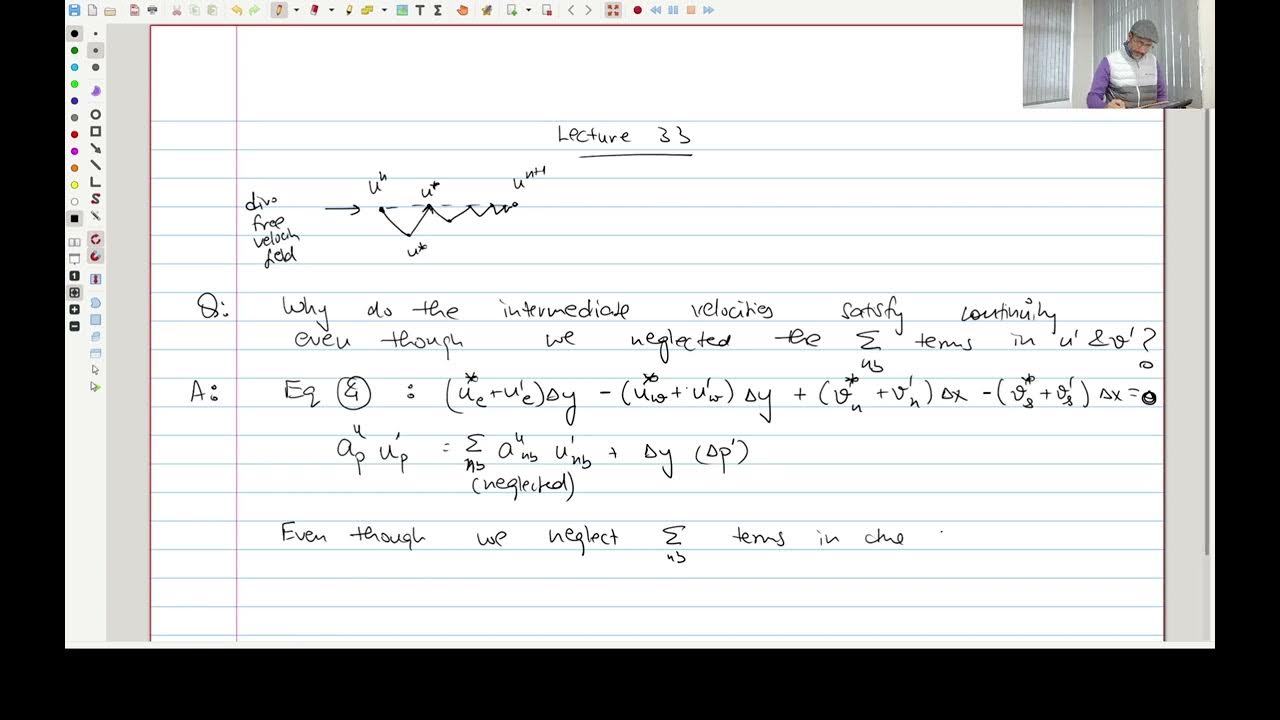 Lecture 33
uⁿ u* uⁿ⁺¹
div.
free
velocity
field
u*
Q: Why do the intermediate velocities satisfy continuity
even though we neglected the Σ terms in u' & v'?
nb
A: Eq ④ : (u*ₑ + u'ₑ)Δy - (u*w + u'w) Δy + (v*ₙ + v'ₙ) Δx - (v*ₛ + v'ₛ) Δx = 0
aᵘₚ u'ₚ = Σ aᵘnb u'nb + Δy (Δp')
nb
(neglected)
Even though we neglect Σ terms in
nb